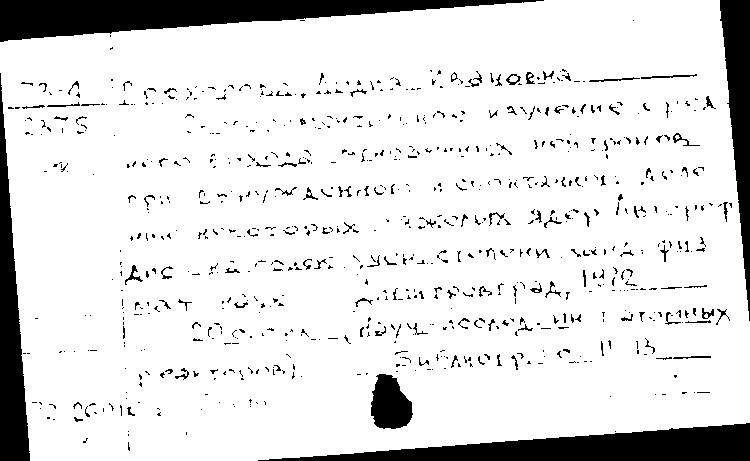 Прохорова, Лидия Ивановна
2375 Экспериментальное изучение сред
него выхода мгновенных нейтронов
при вынужденном и спонтанном деле
нии некоторых тяжелых ядер Автореф
дис на соиск учен степени канд. физ
мат наук Димитровград, 1972
20 с. (Науч-исслед. ин т атомных
реакторов). Библиогр.: с. 11 13